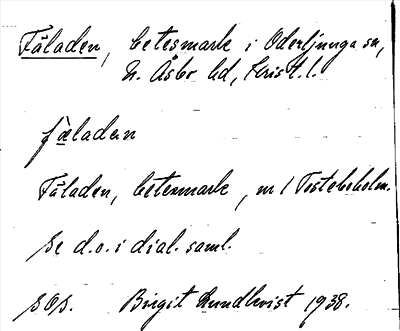 Fäladen, betesmark i Oderljunga sn,
N. Åsbo hd, Krist. l.
fäladen
Fäladen, betesmark, nr 1 Tostebsholm.
se d.o. i dial. saml.
SOS. Birgit Lundkvist 1938.